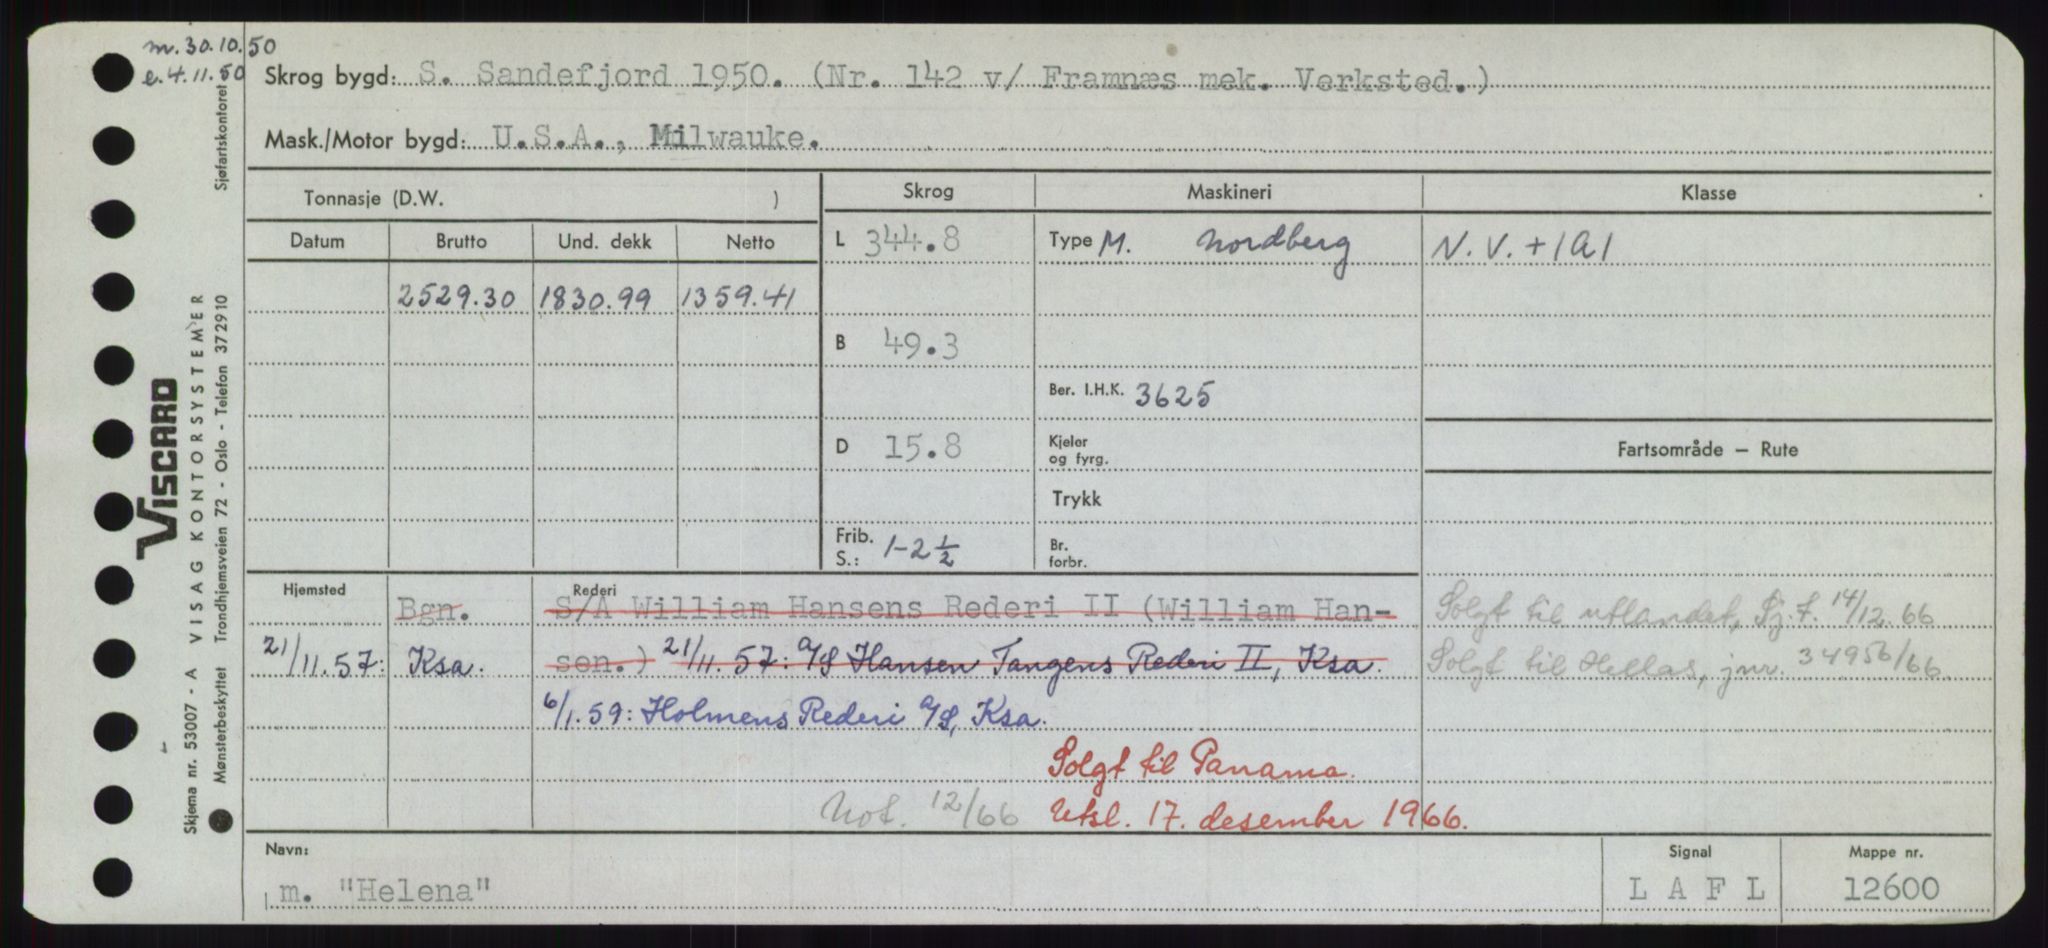 m. 30.10.50
e. 4.11.50
Skrog bygd: S. Sandefjord 1950. (Nr. 142 v/ Framnæs mek. Verksted.)
Mask./Motor bygd: U.S.A., Milwauke.
Tonnasje (D.W. )
Skrog Maskineri Klasse
Datum Brutto Und. dekk Netto
L 344.8 Type M. Nordberg N.V. + 1A1
2529.30 1830.99 1359.41
B 49.3
Ber. I.H.K. 3625
D 15.8 Kjeler og fyrg.
Fartsområde – Rute
Trykk
Frib. S.: 1-2 1/2 Br. forbr.
Hjemsted Rederi
Bgn. S/A William Hansens Rederi II (William Han-
Solgt til utlandet, Sj.f. 14/12.66
21/11.57: Ksa. sen.) 21/11.57: A/S Hansen Tangens Rederi II, Ksa.
Solgt til Hellas, jnr. 34956/66.
6/1.59: Holmens Rederi A/S, Ksa.
Solgt til Panama.
Not. 12/66 Utsl. 17. desember 1966.
Navn: Signal Mappe nr.
m. "Helena" L A F L 12600
Sjøfartskontoret
VISCARD
VISAG KONTORSYSTEMER
Skjema nr. 53007 - A
Trondhjemsveien 72 - Oslo - Telefon 372910
Mønsterbeskyttet